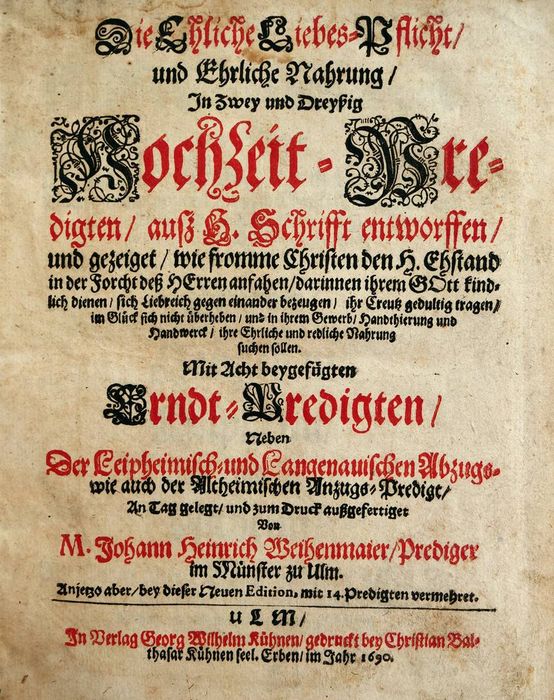 Die Ehliche Liebes-Pflicht/
und Ehrliche Nahrung/
In Zwey und Dreyßig
Hochzeit-Pre-
digten/ ausz H. Schrifft entworffen/
und gezeiget/ wie fromme Christen den H. Ehstand
in der Forcht deß HErren anfahen/ darinnen ihrem GOtt kind-
lich dienen/ sich Liebreich gegen einander bezeugen/ ihr Creutz gedultig tragen/
im Glück sich nicht überheben/ und in ihrem Gewerb/ Handthierung und
Handwerck/ ihre Ehrliche und redliche Nahrung
suchen sollen.
Mit Acht beygefügten
Erndt-Predigten/
Neben
Der Leipheimisch-und Langenauischen Abzugs-
wie auch der Altheimischen Anzugs-Predigt/
An Tag gelegt/ und zum Druck außgefertiget
Von
M. Johann Heinrich Weihenmaier/ Prediger
im Münster zu Ulm.
Anjetzo aber/ bey dieser Neuen Edition, mit 14. Predigten vermehret.
ULM/
In Verlag Georg Wilhelm Kühnen/ gedruckt bey Christian Bal-
thasar Kühnen seel. Erben/ im Jahr 1690.